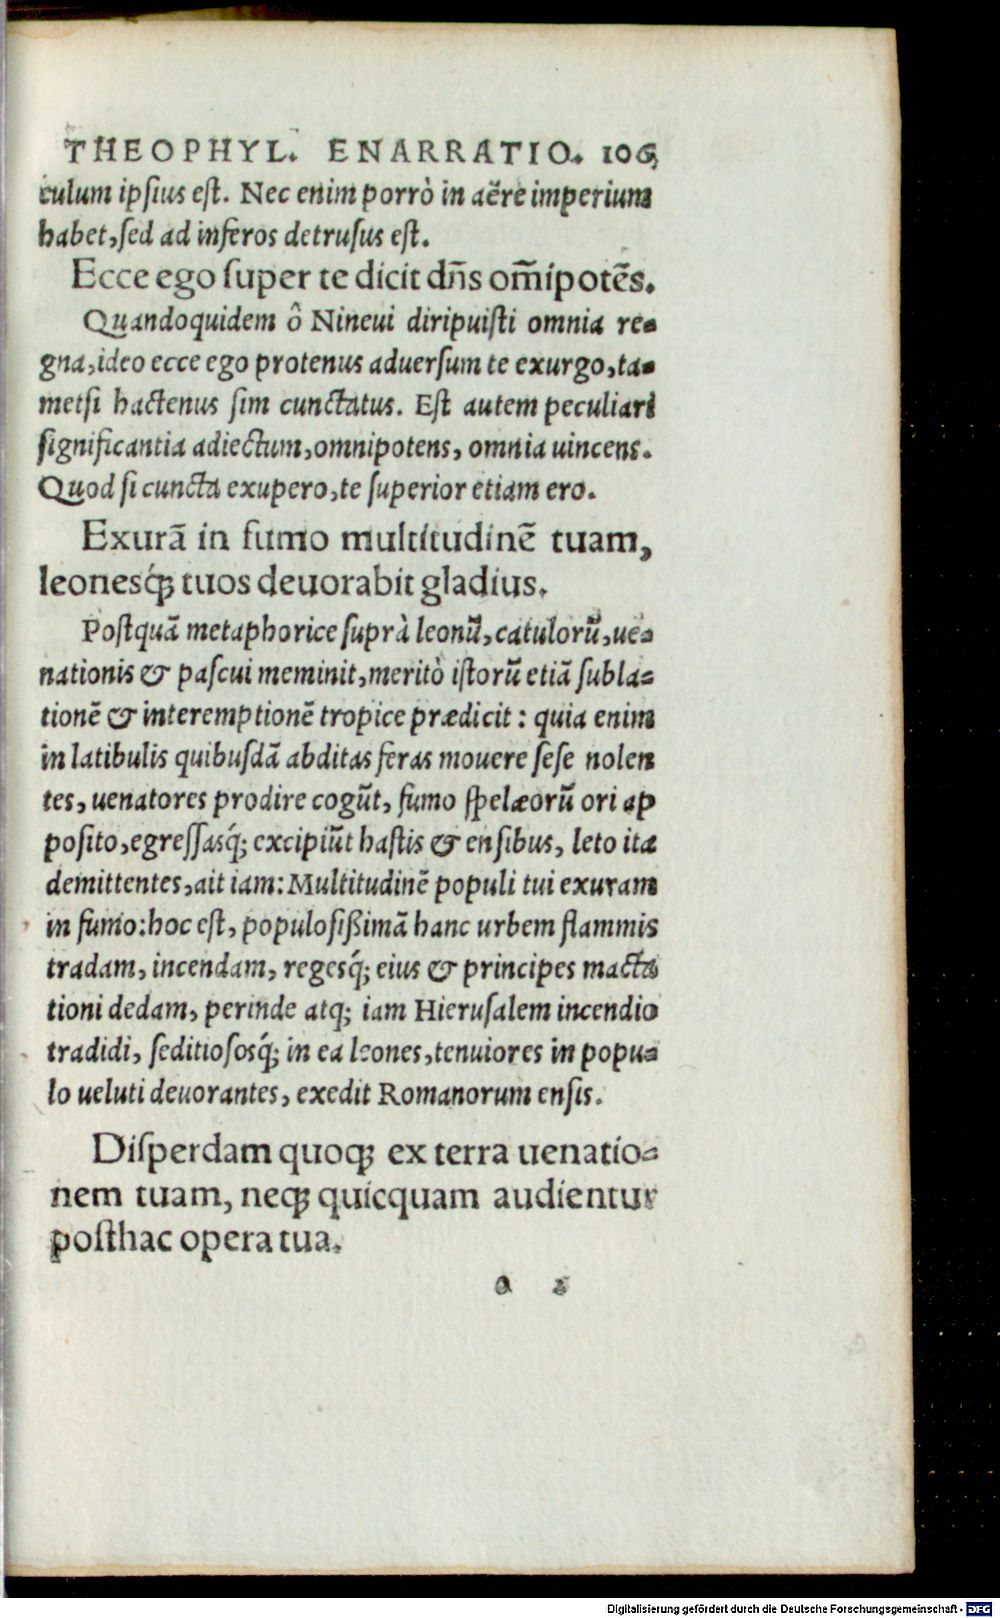 THEOPHYL. ENARRATIO. 106
culum ipsius est. Nec enim porrò in aëre imperium
habet, sed ad inferos detrusus est.
Ecce ego super te dicit dn̄s om̄ipotēs.
Quandoquidem ô Nineui diripuisti omnia re-
gna, ideo ecce ego protenus aduersum te exurgo, ta-
metsi hactenus sim cunctatus. Est autem peculiari
significantia adiectum, omnipotens, omnia uincens.
Quod si cuncta exupero, te superior etiam ero.
Exurā in fumo multitudinē tuam,
leonesq́; tuos deuorabit gladius.
Postquā metaphorice suprà leonū, catulorū, ue-
nationis & pascui meminit, meritò istorū etiā subla-
tionē & interemptionē tropice prædicit: quia enim
in latibulis quibusdā abditas feras mouere sese nolen
tes, uenatores prodire cogūt, fumo spelæorū ori ap
posito, egressasq́; excipiūt hastis & ensibus, leto ita
demittentes, ait iam: Multitudinē populi tui exuram
in fumo: hoc est, populosißimā hanc urbem flammis
tradam, incendam, regesq́; eius & principes macta
tioni dedam, perinde atq; iam Hierusalem incendio
tradidi, seditiososq́; in ea leones, tenuiores in popu-
lo ueluti deuorantes, exedit Romanorum ensis.
Disperdam quoq; ex terra uenatio-
nem tuam, neq; quicquam audientur
posthac opera tua.
Digitalisierung gefördert durch die Deutsche Forschungsgemeinschaft - DFG